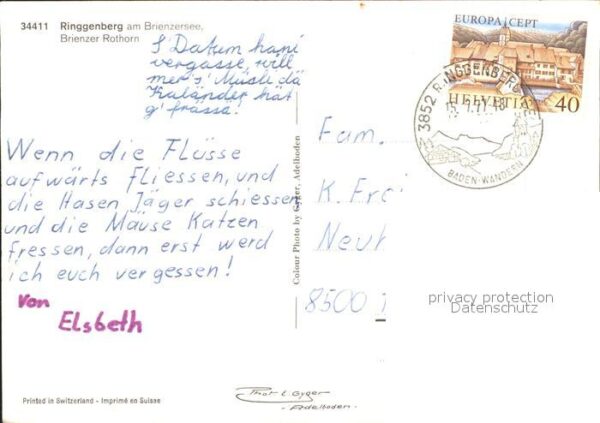 34411 Ringgenberg am Brienzersee,
Brienzer Rothorn
S'Datum hani
vergasse, will
mer s' Müsle dä
Kaländer hät
g'frässä!
Wenn die Flüsse
aufwärts fliessen, und
die Hasen Jäger schiessen,
und die Mäuse Katzen
fressen, dann erst werd
ich euch vergessen!
Von
Elsbeth
Colour Photo by Gyger, Adelboden
EUROPA CEPT
HELVETIA 40
3852 RINGGENBERG
BADEN-WANDERN
Fam.
K. Frei
8500
privacy protection
Datenschutz
Printed in Switzerland - Imprimé en Suisse
Phot E Gyger
- Adelboden -